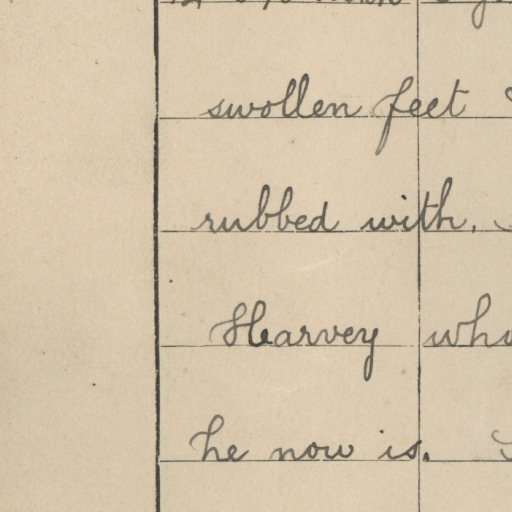 swollen feet
rubbed with.
Harvey who
he now is.